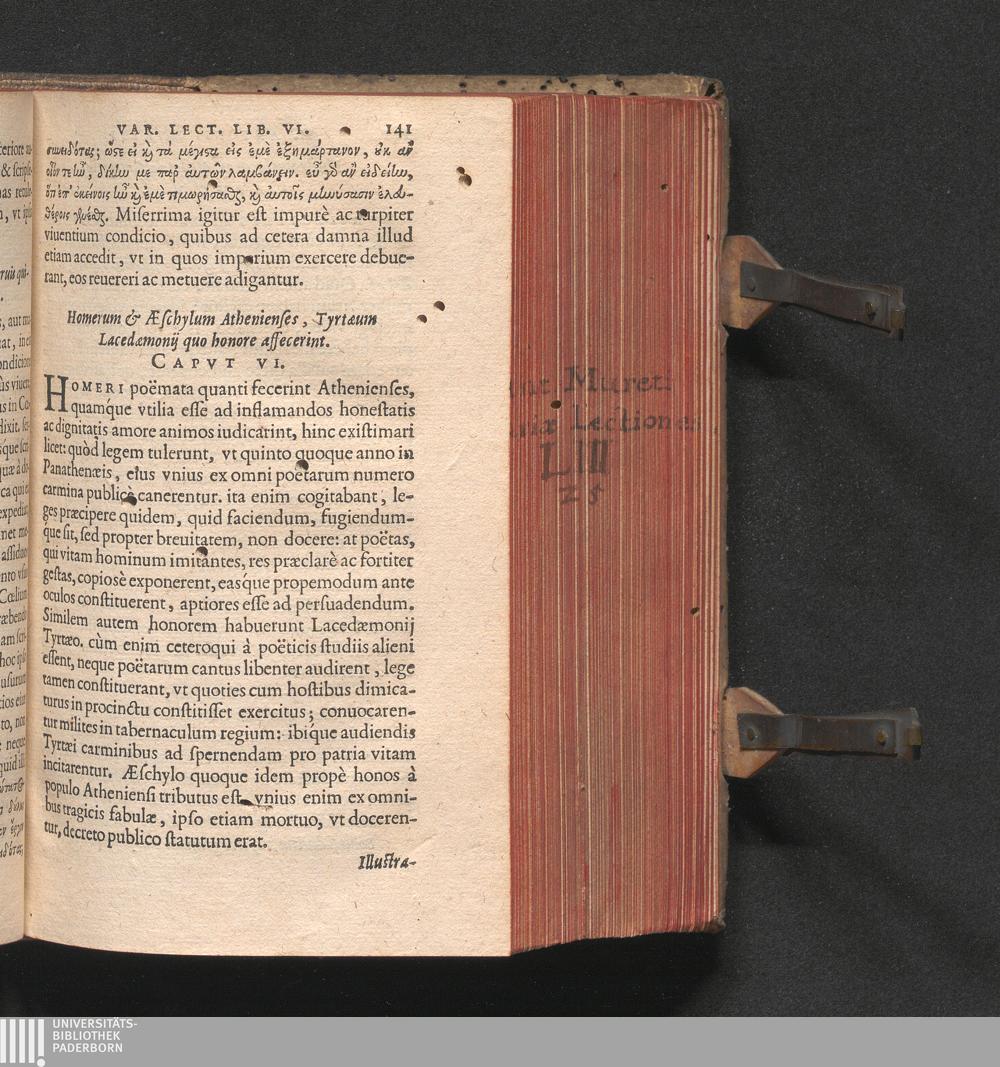 VAR. LECT. LIB. VI. 141
συνειδότας; ὥστε εἰ καὶ τὰ μέγιστα εἰς ἐμὲ ἐξημάρτανον, οὐκ ἂν
οἷόν τε ἦν, δίκην με παρ' αὐτῶν λαμβάνειν. εὖ γὰρ ἂν εἰδείην,
ὅτι ἐπ' ἐκείνοις ἦν καὶ ἐμὲ τιμωρήσασθαι, καὶ αὐτοῖς μηνύσασιν ἐλευ-
θέροις γενέσθαι. Miſerrima igitur eſt impurè ac turpiter
viuentium condicio, quibus ad cetera damna illud
etiam accedit, vt in quos imperium exercere debue-
rant, eos reuereri ac metuere adigantur.
Homerum & Æſchylum Athenienſes, Tyrtæum
Lacedæmonij quo honore affecerint.
CAPVT VI.
HOMERI poëmata quanti fecerint Athenienſes,
quamq́ue vtilia eſſe ad inflamandos honeſtatis
ac dignitatis amore animos iudicarint, hinc exiſtimari
licet: quòd legem tulerunt, vt quinto quoque anno in
Panathenæis, eius vnius ex omni poëtarum numero
carmina publicè canerentur. ita enim cogitabant, le-
ges præcipere quidem, quid faciendum, fugiendum-
que ſit, ſed propter breuitatem, non docere: at poëtas,
qui vitam hominum imitantes, res præclarè ac fortiter
geſtas, copiosè exponerent, easq́ue propemodum ante
oculos conſtituerent, aptiores eſſe ad perſuadendum.
Similem autem honorem habuerunt Lacedæmonij
Tyrtæo. cùm enim ceteroqui à poëticis ſtudiis alieni
eſſent, neque poëtarum cantus libenter audirent, lege
tamen conſtituerant, vt quoties cum hoſtibus dimica-
turus in procinctu conſtitiſſet exercitus; conuocaren-
tur milites in tabernaculum regium: ibiq́ue audiendis
Tyrtæi carminibus ad ſpernendam pro patria vitam
incitarentur. Æſchylo quoque idem propè honos à
populo Athenienſi tributus eſt. vnius enim ex omni-
bus tragicis fabulæ, ipſo etiam mortuo, vt doceren-
tur, decreto publico ſtatutum erat.
Illuſtra-
Mureti
Lectiones
LIII
25
UNIVERSITÄTS-
BIBLIOTHEK
PADERBORN